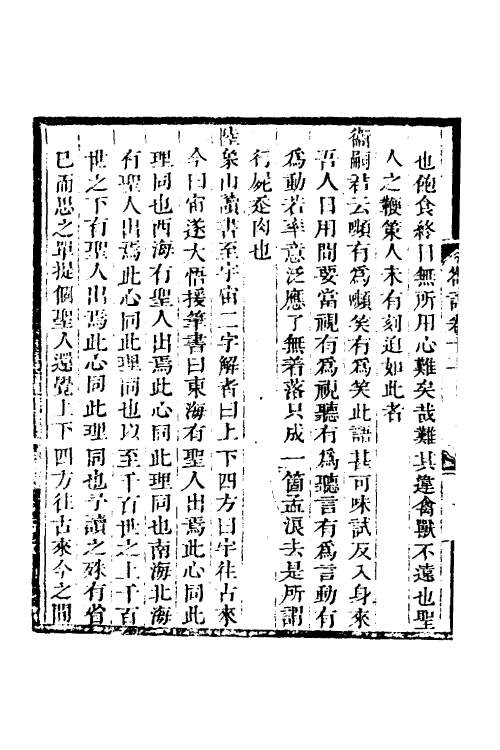 也飽食終日無所用心難矣哉難其違禽獸不遠也聖
人之鞭策人未有刻迫如此者
衞嗣君云嚬有爲嚬笑有爲笑此語甚可味試反入身來
吾人日用間要當視有爲視聽有爲聽言有爲言動有
爲動若率意泛應了無着落只成一箇孟浪去是所謂
行屍走肉也
陸象山讀書至宇宙二字解者曰上下四方曰宇往古來
今曰宙遂大悟援筆書曰東海有聖人出焉此心同此
理同也西海有聖人出焉此心同此理同也南海北海
有聖人出焉此心同此理同也以至千百世之上千百
世之下有聖人出焉此心同此理同也予讀之殊有省
已而思之單提個聖人還覺上下四方往古來今之間
卷十一